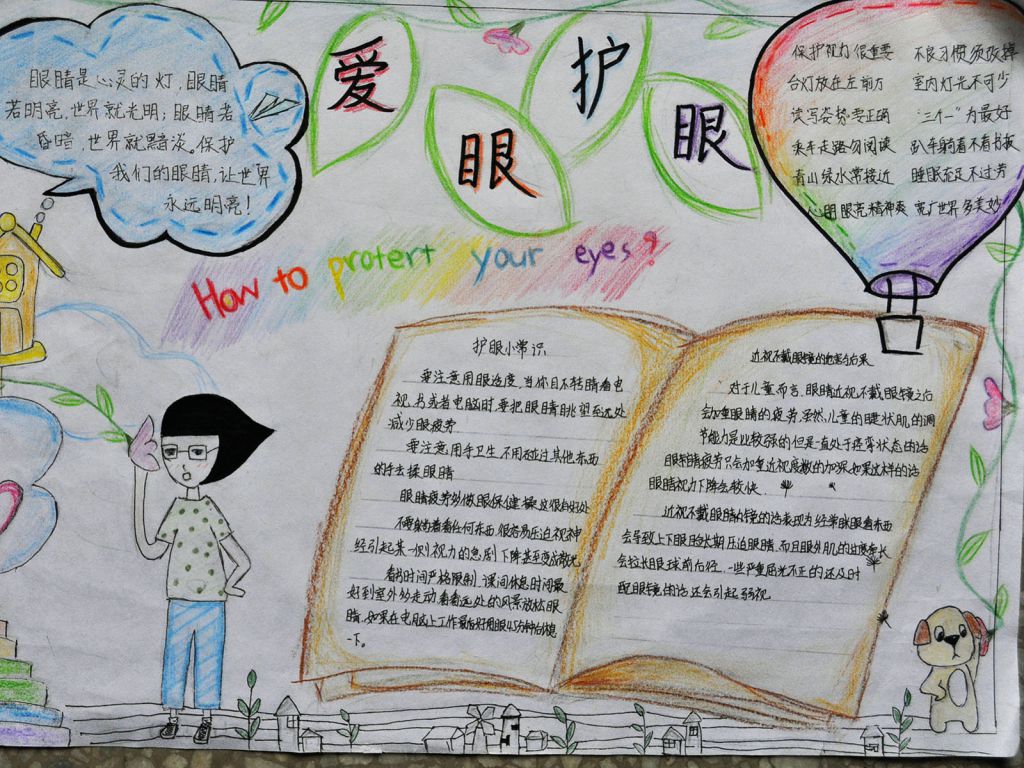 爱护眼眼
眼睛是心灵的灯,眼睛
若明亮,世界就光明;眼睛若
昏暗,世界就黯淡。保护
我们的眼睛,让世界
永远明亮!
保护视力很重要 不良习惯须改掉
台灯放在左前方 室内灯光不可少
读写姿势要正确 “三个一”为最好
乘车走路勿阅读 趴车躺着不看书报
青山绿水常接近 睡眠充足不过劳
心明眼亮精神爽 宽广世界多美妙
How to protert your eyes?
护眼小常识
要注意用眼适度,当你目不转睛看电
视,书或者电脑时,要把眼睛眺望至远处
减少眼疲劳
要注意用手卫生 不用碰过其他东西
的手去揉眼睛
眼睛疲劳多做眼保健操这很有好处
不要躺着看任何东西很容易压迫视神
经引起某一侧视力的急剧下降甚至变成散光
看书时间严格限制,课间休息时间最
好到室外多走动看看远处的风景放松眼
睛,如果在电脑上工作最后好用眼45分钟后休息
一下。
近视不戴眼镜的危害与后果
对于儿童而言,眼睛近视不戴眼镜之后
会加重眼睛的疲劳,虽然儿童的睫状肌的调
节能力是比较强的但是一直处于痉挛状态的话
眼睛疲劳只会加重近视度数的加深,如果这样的话
眼睛视力下降会较快.
近视不戴眼镜的话表现为经常眯眼看东西
会导致上下眼睑长期压迫眼睛,而且眼外肌的
会拉长眼球前后径,一些严重屈光不正的还及时
配眼镜的话还会引起弱视